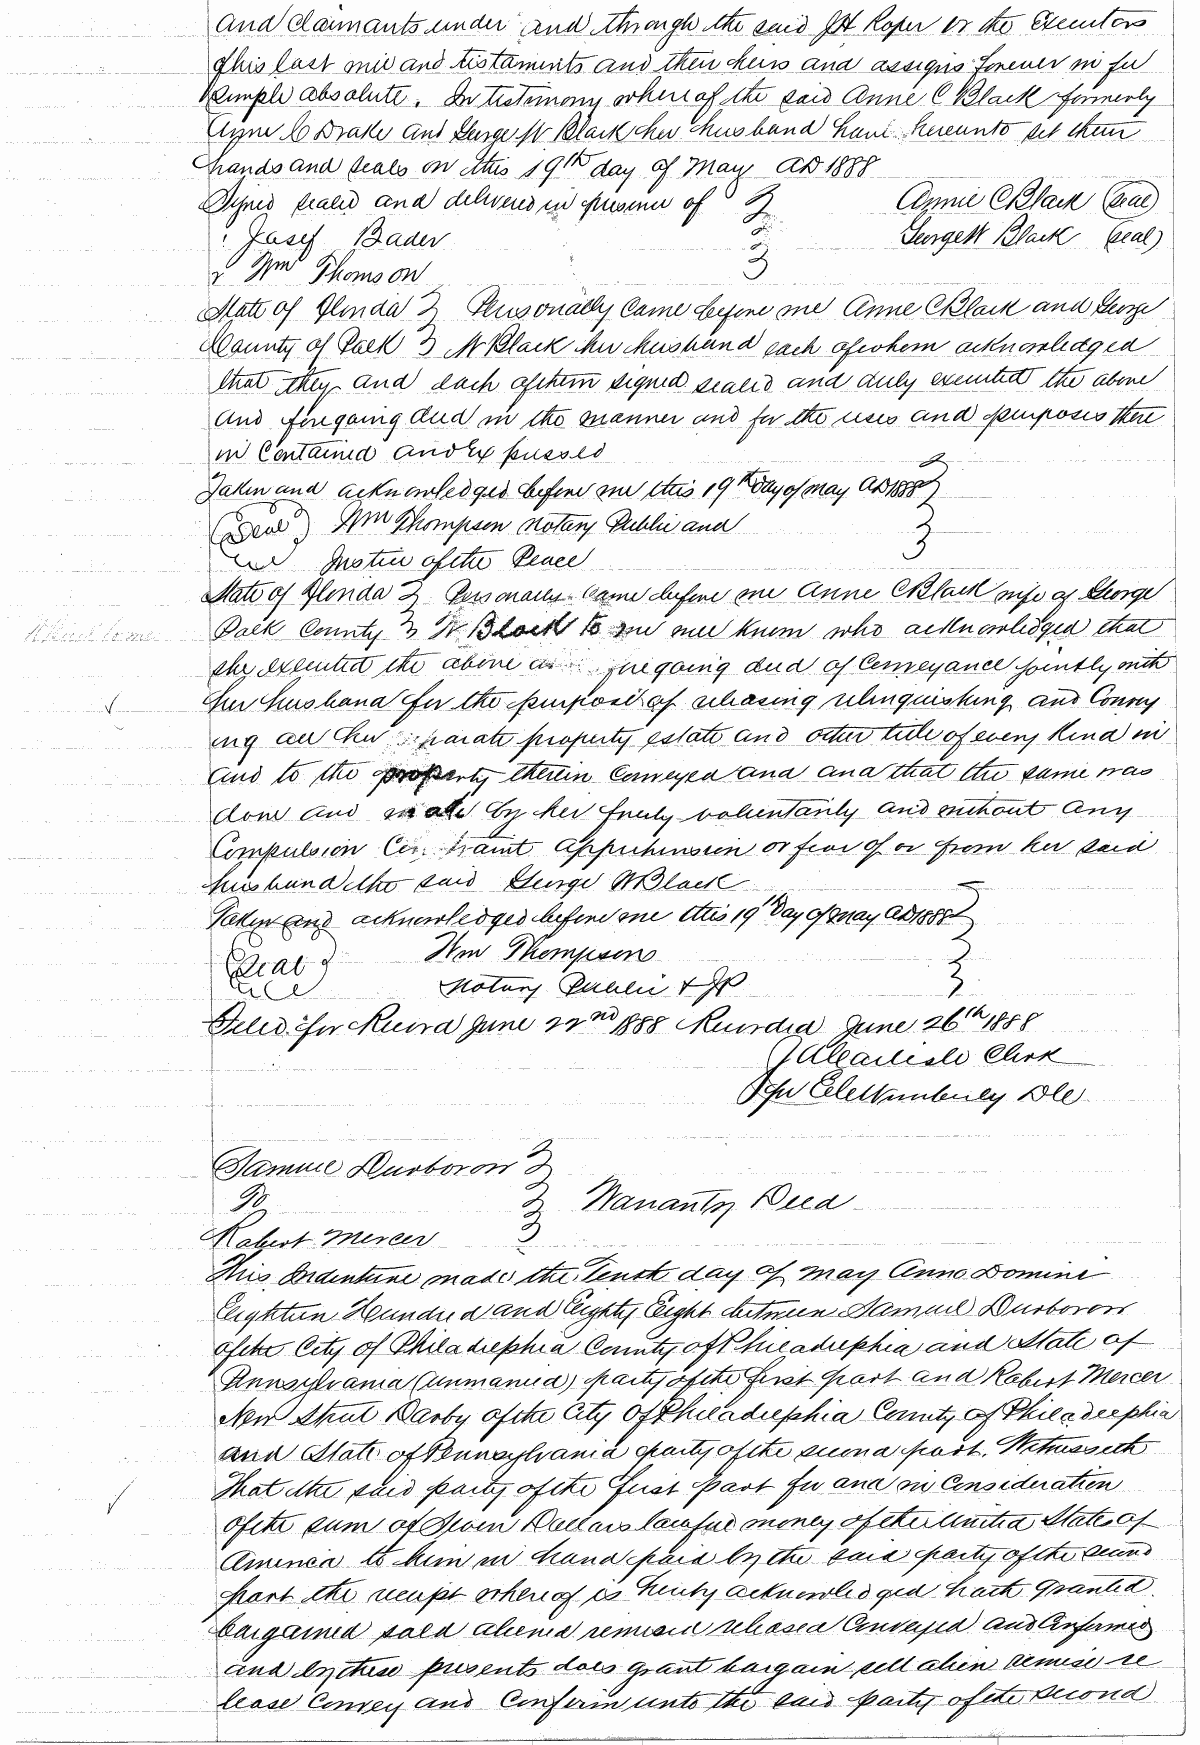 and claimants under and through the said JH Roper or the Executors
of his last will and testaments and their heirs and assigns forever in fee
simple absolute. In testimony whereof the said Anne C Black formerly
Anne C Drake and George W Black her husband have hereunto set their
hands and seals on this 19th day of May AD 1888
Signed sealed and delivered in presence of Annie C Black (seal)
Josef Bader George W Black (seal)
Wm Thomson
State of Florida } Personally came before me Anne C Black and George
County of Polk } W Black her husband each of whom acknowledged
that they and each of them signed sealed and duly executed the above
and foregoing deed in the manner and for the uses and purposes there
in contained and Ex pressed
Taken and acknowledged before me this 19th day of May AD 1888
(Seal) Wm Thompson Notary Public and
Justice of the Peace
State of Florida } Personally came before me Anne C Black wife of George
Polk County } W Black to me well known who acknowledged that
she executed the above foregoing deed of Conveyance jointly with
her husband for the purpose of releasing relinquishing and Convey
ing all her separate property estate and other title of every kind in
and to the property therein conveyed and and that the same was
done and made by her freely voluntarily and without any
Compulsion Constraint apprehension or fear of or from her said
husband the said George W Black
Taken and acknowledged before me this 19th Day of May AD 1888
(Seal) Wm Thompson
Notary Public & JP
Filed for Record June 22nd 1888 Recorded June 26th 1888
Clerk
Per DC
Samuel Durborow
To } Warranty Deed
Robert Mercer
This Indenture made the Tenth day of May Anno Domini
Eighteen Hundred and Eighty Eight between Samuel Durborow
of the City of Philadelphia County of Philadelphia and State of
Pennsylvania (unmarried) party of the first part and Robert Mercer
New Street Darby of the City of Philadelphia County of Philadelphia
and State of Pennsylvania party of the second part. Witnesseth
That the said party of the first part for and in Consideration
of the sum of Seven Dollars lawful money of the United States of
America to him in hand paid by the said party of the second
part the receipt whereof is hereby acknowledged hath granted
bargained sold aliened remised released Conveyed and Confirmed
and by these presents does grant bargain sell alien remise re
lease Convey and Confirm unto the said party of the second